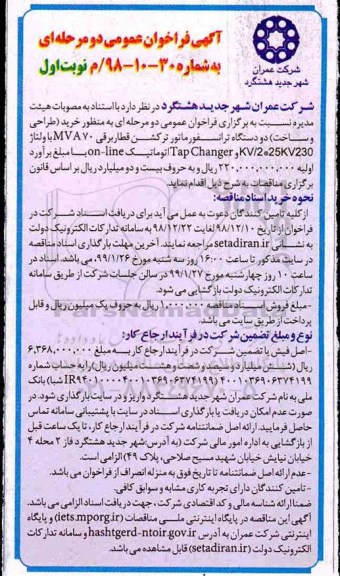 آگهی فراخوان عمومی دو مرحله‌ای
به شماره ۳۰-۱۰-۹۸/م نوبت اول
شرکت عمران
شهر جدید هشتگرد
شرکت عمران شهر جدید هشتگرد در نظر دارد با استناد به مصوبات هیئت
مدیره نسبت به برگزاری فراخوان عمومی دو مرحله‌ای به منظور خرید (طراحی
و ساخت) دو دستگاه ترانسفورماتور ترکشن قطار برقی MVA ۷۰ با ولتاژ
KV/2*25KV230 و Tap Changer اتوماتیک on-line با مبلغ برآورد
اولیه ۲۲۰,۰۰۰,۰۰۰,۰۰۰ ریال و به حروف بیست و دو میلیارد ریال بر اساس قانون
برگزاری مناقصات به شرح ذیل اقدام نماید.
نحوه خرید اسناد مناقصه:
از کلیه تامین کنندگان دعوت به عمل می آید برای دریافت اسناد شرکت در
فراخوان از تاریخ ۹۸/۱۲/۱۰ لغایت ۹۸/۱۲/۲۲ به سامانه تدارکات الکترونیک دولت
به نشانی setadiran.ir مراجعه نمایند. آخرین مهلت بارگذاری اسناد مناقصه
در سایت مذکور تا ساعت ۱۶:۰۰ روز سه شنبه مورخ ۹۹/۱/۲۶، می باشد. اسناد در
ساعت ۱۰ روز چهارشنبه مورخ ۹۹/۱/۲۷ در سالن جلسات شرکت از طریق سامانه
تدارکات الکترونیک دولت بازگشایی می شود.
-مبلغ فروش اسناد مناقصه ۱,۰۰۰,۰۰۰ ریال به حروف یک میلیون ریال و قابل
پرداخت از طریق سایت می باشد.
نوع و مبلغ تضمین شرکت در فرآیند ارجاع کار:
-اصل فیش یا تضمین شرکت در فرآیند ارجاع کار به مبلغ ۶,۳۶۸,۰۰۰,۰۰۰
ریال (شش میلیارد و سیصد و شصت و هشت میلیون ریال) رابه حساب شماره
بانک
ملی به نام شرکت عمران شهر جدید هشتگرد واریز و در سایت بارگذاری شود. در
صورت عدم امکان دریافت یا بارگذاری اسناد در سایت با پشتیبانی سامانه تماس
حاصل فرمایید. ارائه اصل ضمانتنامه شرکت در فرآیند ارجاع کار، تا یک ساعت قبل
از بازگشایی به اداره امور مالی شرکت (به آدرس:شهر جدید هشتگرد فاز ۲ محله ۴
خیابان نیایش خیابان شهید مسیح صلاحی، پلاک ۴۹) الزامی است.
-عدم ارائه اصل ضمانتنامه تا تاریخ فوق به منزله انصراف از فراخوان می باشد.
- تامین کنندگان دارای تجربه کاری مشابه و سوابق کافی.
ضمنا ارائه شناسه ملی و کد اقتصادی شرکت، جهت دریافت اسناد الزامی می باشد.
آگهی این مناقصه در پایگاه اینترنتی ملی مناقصات (iets.mporg.ir) و پایگاه
اینترنتی شرکت عمران به آدرس hashtgerd-ntoir.gov.ir و سامانه تدارکات
الکترونیک دولت (setadiran.ir) قابل مشاهده می باشد.